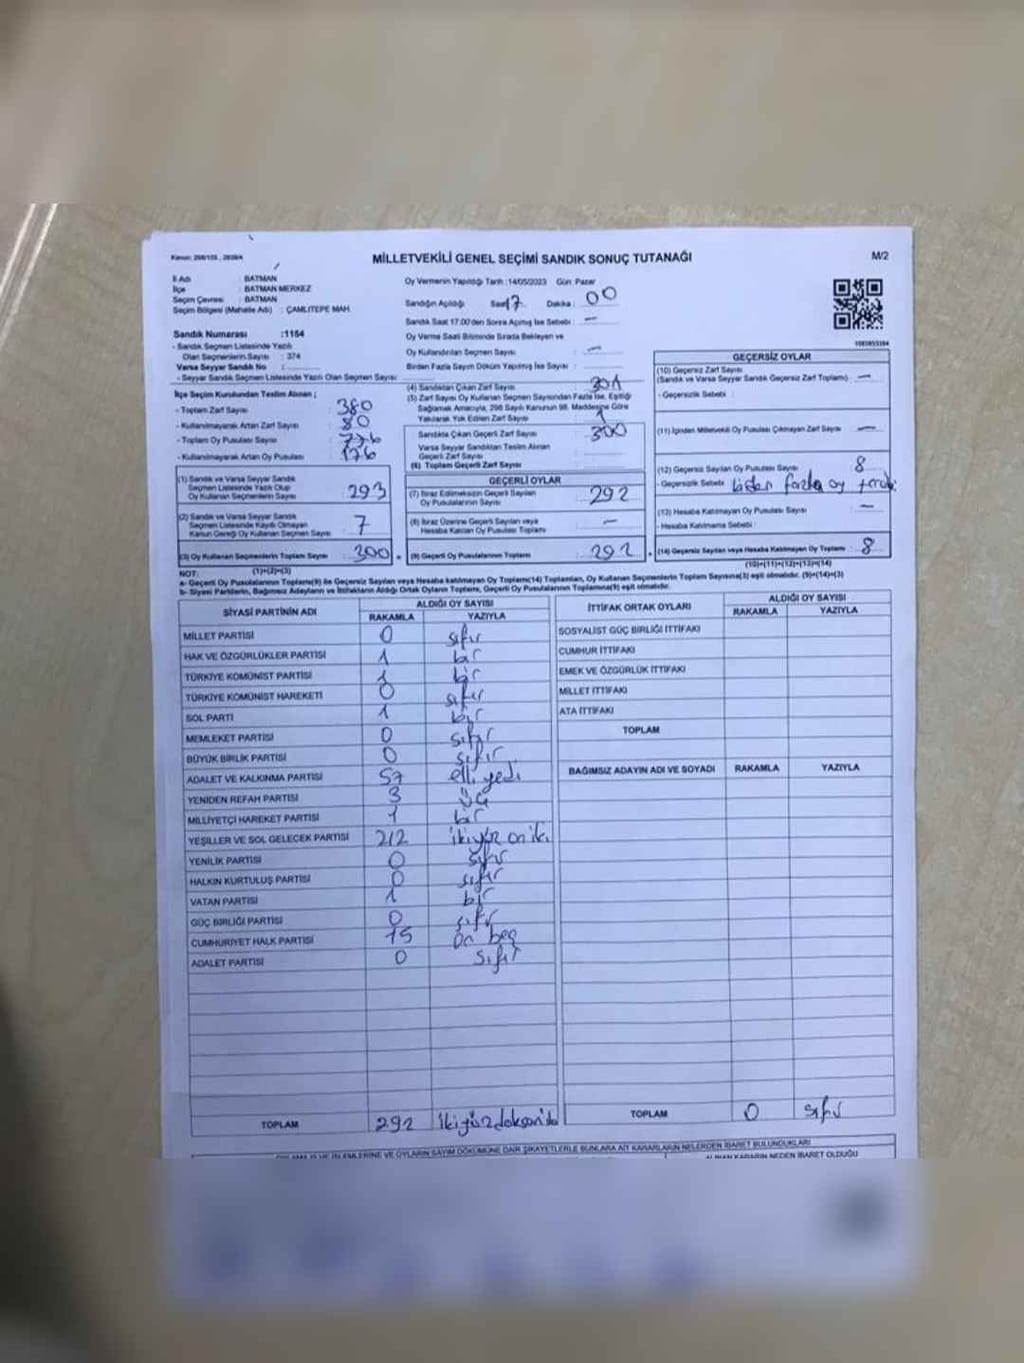 Kanun: 298/105, 2839/4
MİLLETVEKİLİ GENEL SEÇİMİ SANDIK SONUÇ TUTANAĞI
M/2
İl Adı : BATMAN
İlçe : BATMAN MERKEZ
Seçim Çevresi : BATMAN
Seçim Bölgesi (Mahalle Adı) : ÇAMLITEPE MAH.
Sandık Numarası :1164
- Sandık Seçmen Listesinde Yazılı
Olan Seçmenlerin Sayısı : 374
Varsa Seyyar Sandık No :
- Seyyar Sandık Seçmen Listesinde Yazılı Olan Seçmen Sayısı
İlçe Seçim Kurulundan Teslim Alınan ;
- Toplam Zarf Sayısı : 380
- Kullanılmayarak Artan Zarf Sayısı : 80
- Toplam Oy Pusulası Sayısı
- Kullanılmayarak Artan Oy Pusulası : 176
(1) Sandık ve Varsa Seyyar Sandık
Seçmen Listesinde Yazılı Olup
Oy Kullanan Seçmenlerin Sayısı : 293
(2) Sandık ve Varsa Seyyar Sandık
Seçmen Listesinde Kayıtlı Olmayan
Kanun Gereği Oy Kullanan Seçmen Sayısı : 7
(3) Oy Kullanan Seçmenlerin Toplam Sayısı : 300
(1)+(2)=(3)
Oy Vermenin Yapıldığı Tarih :14/05/2023 Gün: Pazar
Sandığın Açıldığı Saat: 17 Dakika : 00
Sandık Saat 17:00'den Sonra Açılmış İse Sebebi : —
Oy Verme Saati Bitiminde Sırada Bekleyen ve
Oy Kullandırılan Seçmen Sayısı : —
Birden Fazla Sayım Döküm Yapılmış İse Sayısı :
(4) Sandıktan Çıkan Zarf Sayısı : 301
(5) Zarf Sayısı Oy Kullanan Seçmen Sayısından Fazla İse, Eşitliği
Sağlamak Amacıyla, 298 Sayılı Kanunun 98. Maddesine Göre
Yakılarak Yok Edilen Zarf Sayısı : 1
Sandıkta Çıkan Geçerli Zarf Sayısı : 300
Varsa Seyyar Sandıktan Teslim Alınan
Geçerli Zarf Sayısı
(6) Toplam Geçerli Zarf Sayısı
GEÇERLİ OYLAR
(7) İtiraz Edilmeksizin Geçerli Sayılan
Oy Pusulalarının Sayısı : 292
(8) İtiraz Üzerine Geçerli Sayılan veya
Hesaba Katılan Oy Pusulası Toplamı : —
(9) Geçerli Oy Pusulalarının Toplamı : 292
1083953384
GEÇERSİZ OYLAR
(10) Geçersiz Zarf Sayısı
(Sandık ve Varsa Seyyar Sandık Geçersiz Zarf Toplamı) : —
- Geçersizlik Sebebi :
(11) İçinden Milletvekili Oy Pusulası Çıkmayan Zarf Sayısı : —
(12) Geçersiz Sayılan Oy Pusulası Sayısı : 8
- Geçersizlik Sebebi : birden fazla oy
(13) Hesaba Katılmayan Oy Pusulası Sayısı : —
- Hesaba Katılmama Sebebi :
(14) Geçersiz Sayılan veya Hesaba Katılmayan Oy Toplamı : 8
(10)+(11)+(12)+(13)=(14)
NOT:
a- Geçerli Oy Pusulalarının Toplamı(9) ile Geçersiz Sayılan veya Hesaba katılmayan Oy Toplamı(14) Toplamları, Oy Kullanan Seçmenlerin Toplam Sayısına(3) eşit olmalıdır. (9)+(14)=(3)
b- Siyasi Partilerin, Bağımsız Adayların ve İttifakların Aldığı Ortak Oyların Toplamı, Geçerli Oy Pusulalarının Toplamına(9) eşit olmalıdır.
SİYASİ PARTİNİN ADI ALDIĞI OY SAYISI
RAKAMLA YAZIYLA
MİLLET PARTİSİ 0 sıfır
HAK VE ÖZGÜRLÜKLER PARTİSİ 1 bir
TÜRKİYE KOMÜNİST PARTİSİ 1 bir
TÜRKİYE KOMÜNİST HAREKETİ 0 sıfır
SOL PARTİ 1 bir
MEMLEKET PARTİSİ 0 sıfır
BÜYÜK BİRLİK PARTİSİ 0 sıfır
ADALET VE KALKINMA PARTİSİ 57 elli yedi
YENİDEN REFAH PARTİSİ 3 üç
MİLLİYETÇİ HAREKET PARTİSİ 1 bir
YEŞİLLER VE SOL GELECEK PARTİSİ 212 ikiyüz on iki
YENİLİK PARTİSİ 0 sıfır
HALKIN KURTULUŞ PARTİSİ 0 sıfır
VATAN PARTİSİ 1 bir
GÜÇ BİRLİĞİ PARTİSİ 0 sıfır
CUMHURİYET HALK PARTİSİ 15 On beş
ADALET PARTİSİ 0 sıfır
TOPLAM 292 ikiyüz doksan iki
İTTİFAK ORTAK OYLARI ALDIĞI OY SAYISI
RAKAMLA YAZIYLA
SOSYALİST GÜÇ BİRLİĞİ İTTİFAKI
CUMHUR İTTİFAKI
EMEK VE ÖZGÜRLÜK İTTİFAKI
MİLLET İTTİFAKI
ATA İTTİFAKI
TOPLAM
BAĞIMSIZ ADAYIN ADI VE SOYADI RAKAMLA YAZIYLA
TOPLAM 0 sıfır
İŞLEMLERİNE VE OYLARIN SAYIM DÖKÜMÜNE DAİR ŞİKAYETLERLE BUNLARA AİT KARARLARIN NELERDEN İBARET BULUNDUKLARI
ALINAN KARARIN NEDEN İBARET OLDUĞU